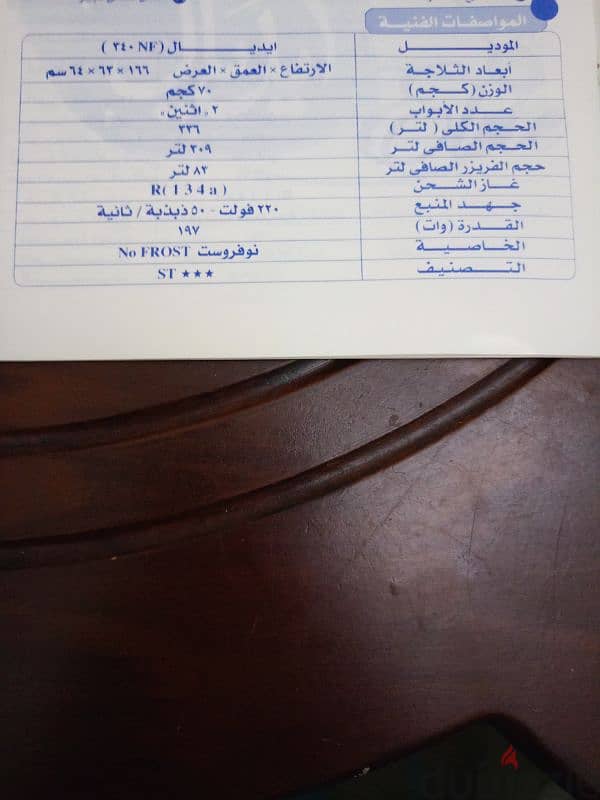 المواصفات الفنية
الموديل ايديال (٣٤٠ NF)
أبعاد الثلاجة الارتفاع × العمق × العرض ١٦٦ × ٦٣ × ٦٤ سم
الوزن (كجم) ٧٠ كجم
عدد الأبواب ٢ «اثنين»
الحجم الكلى (لتر) ٣٣٦
الحجم الصافى لتر ٣٠٩ لتر
حجم الفريزر الصافى لتر ٨٢ لتر
غاز الشحن R(134a)
جهد المنبع ٢٢٠ فولت - ٥٠ ذبذبة / ثانية
القدرة (وات) ١٩٧
الخاصية نوفروست No FROST
التصنيف ST ★★★